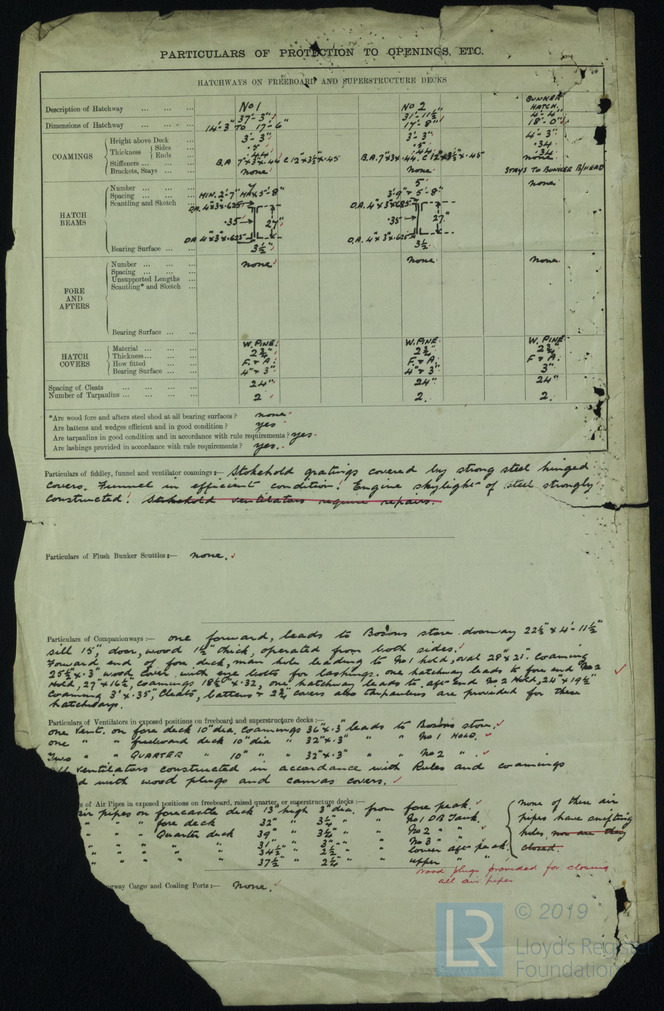 PARTICULARS OF PROTECTION TO OPENINGS, ETC.
HATCHWAYS ON FREEBOARD AND SUPERSTRUCTURE DECKS
Description of Hatchway ... ... ... No 1 No 2 BUNKER HATCH.
Dimensions of Hatchway ... ... ... 37'-3" 14'-3" TO 17'-6" 31'-11½" 17'-8" 4'-4" 18'-0"
COAMINGS
Height above Deck ... 3'-3" 3'-3" 4'-3"
Thickness Sides ... .5" .34
Ends ... .44 .44 .34
Stiffeners ... B.A. 7"x3"x.44 C 12"x3½"x.45 B.A. 7"x3"x.44. C 12"x3½"x.45 none
Brackets, Stays ... none none STAYS TO BUNKER B/HEAD
HATCH BEAMS
Number ... 7 5 none
Spacing ... MIN. 2'-7" MAX 5'-8" 3'-9" & 5'-8"
Scantling and Sketch D.A. 4"x3"x.625" .35 27" D.A. 4"x3"x.625 D.A. 4"x3"x.625" .35 27" D.A. 4"x3"x.625
Bearing Surface ... 3½" 3½
FORE AND AFTERS
Number ... none none none
Spacing ...
Unsupported Lengths ...
Scantling* and Sketch ...
Bearing Surface ...
HATCH COVERS
Material ... W. PINE. W. PINE W. PINE
Thickness ... 2¾" 2¾ 2¾
How fitted ... F. & A. F. & A. F & A.
Bearing Surface ... 4" & 3" 4" & 3" 3"
Spacing of Cleats ... 24" 24" 24"
Number of Tarpaulins ... 2 2. 2.
*Are wood fore and afters steel shod at all bearing surfaces? none
Are battens and wedges efficient and in good condition? yes
Are tarpaulins in good condition and in accordance with rule requirements? yes
Are lashings provided in accordance with rule requirements? yes.
Particulars of fiddley, funnel and ventilator coamings:— Stokehold gratings covered by strong steel hinged
covers. Funnel in efficient condition. Engine skylight of steel strongly
constructed. Stokehold ventilators require repairs.
Particulars of Flush Bunker Scuttles:— none.
Particulars of Companionways:— one forward, leads to Bosons store. doorway 22½" x 4'-11½"
sill 15", door, wood 1½" thick, operated from both sides.
Forward end of fore deck, man hole leading to No 1 hold, oval 28" x 21". Coaming
25½" x .3" wood cover, with eye bolts for lashings. one hatchway leads to fore end No 2
Hold, 27" x 16½", coamings 18½" x .32, one hatchway leads to aft end No 2 Hold, 24" x 19½"
Coaming 3' x .35" Cleats, battens & 2¾" covers also tarpaulins are provided for these
hatchways.
Particulars of Ventilators in exposed positions on freeboard and superstructure decks:—
one Vent. on fore deck 10" dia, coamings 36" x .3" leads to Bosons store.
one " " freeboard deck 10" dia " 32" x .3" " " No 1 HOLD.
Two " " QUARTER " 10" " " 32" x .3" " " No 2 "
Ventilators constructed in accordance with Rules and coamings
d with wood plugs and canvas covers.
s of Air Pipes in exposed positions on freeboard, raised quarter, or superstructure decks:—
air pipes on forecastle deck 13" high 3" dia, from fore peak.
" " " fore deck 32" " 3¼" " " No 1 DB Tank.
" " " Quarter deck 39" " 3¼" " " No 2 "
" " " " " 31" " 3" " " No 3 "
" " " " " 34½" " 2½" " " lower aft peak.
" " " " " 37½" " 2¼" " " upper " "
none of these air
pipes have anything
holes, nor are they
closed.
Wood plugs provided for closing
all air pipes
gway Cargo and Coaling Ports:— None.
LR © 2019
Lloyd's Register
Foundation